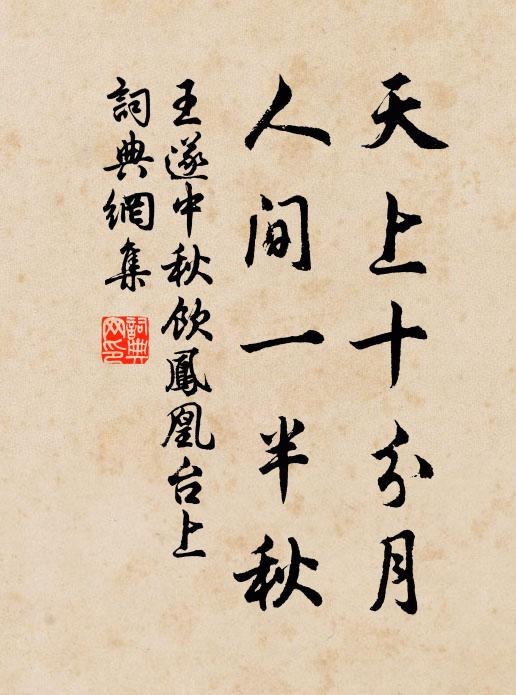 天上十分月
人间一半秋
王遂中秋飲鳳凰台上
詞典網集
詞典網印